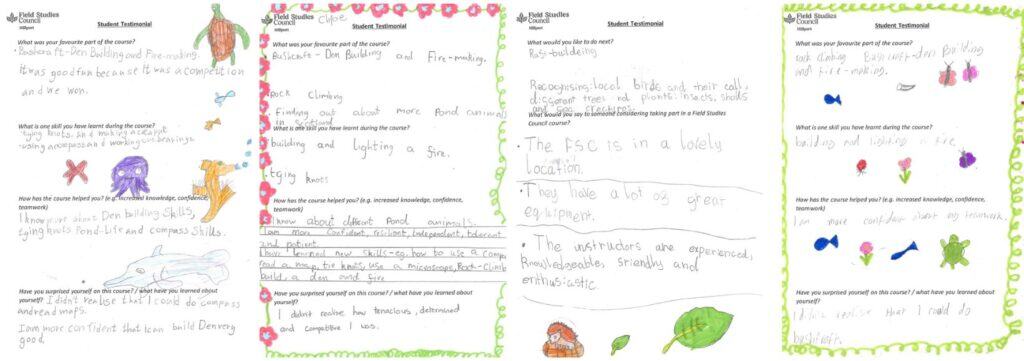 Field Studies
Council
Millport
Student Testimonial
What was your favourite part of the course?
• Bushcraft-Den Building and Fire-making.
It was good fun because It was a competition
and we won.
What is one skill you have learned during the course?
• tying knots. and making a
• using a compass and working out bearings.
How has the course helped you? (e.g. increased knowledge, confidence,
teamwork)
I know more about Den building skills,
tying knots Pond-Life and compass skills.
Have you surprised yourself on this course? / what have you learned about
yourself?
I didn't realise that I could do compass
and read maps.
I am more confident that I can build Den very
good.
Field Studies
Council
Millport
Chloe
Student Testimonial
What was your favourite part of the course?
• Bushcraft - Den Building and Fire-making.
• Rock Climbing
• Finding out about more Pond animals
in scotland
What is one skill you have learned during the course?
• building and lighting a fire.
• tying knots
How has the course helped you? (e.g. increased knowledge, confidence,
teamwork)
I know about different Pond animals.
I am more confident, resilient, independent, tolerant
and patient.
I have learned new skills-eg. how to use a compass
read a map, tie knots, use a microscope, Rock-Climb
build, a den and fire
Have you surprised yourself on this course? / what have you learned about
yourself?
I didn't realise how tenacious, determined
and competitive I was.
Field Studies
Council
Millport
Student Testimonial
What would you like to do next?
Raft-buildeing
Recognising: local birds and their call,
different trees and plants: insects, shells
and sea creatures
What would you say to someone considering taking part in a Field Studies
Council course?
• The FSC is in a lovely
location.
• They have a lot of great
equipment.
• The instructors are experienced,
knowledgeable, friendly and
enthusiastic
Field Studies
Council
Millport
Student Testimonial
What was your favourite part of the course?
rock climbing Bushcraft-den Building
and fire-making.
What is one skill you have learned during the course?
building and lighting a fire.
How has the course helped you? (e.g. increased knowledge, confidence,
teamwork)
I am more confident about my teamwork.
Have you surprised yourself on this course? / what have you learned about
yourself?
I didn't realise that I could do
bushcraft.